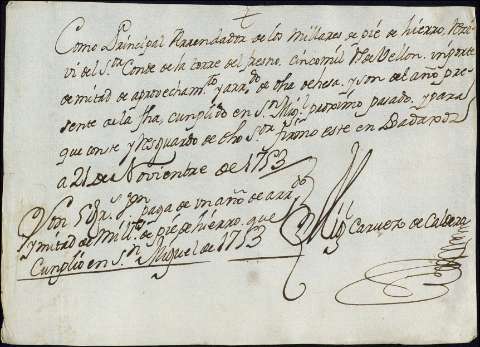 Como Principal Arrendador de los Millares de pie de hierro, Reciví
vi del Sor Conde de la torre del fresno, cinco mil Rs de Vellon, importe
de mitad de aprovechamto y arado de dha dehesa, y son del año pre
sente de la fha, cumplido en Sn Migl proximo pasado, y para
que conste y Resguardo de dho Sor firmo este en Badajoz
a 21 de Noviembre de 1753
Son 5@ Rs paga de un año de arado
y mitad de Millr de pie de hierro, que
Cumplio en Sn Miguel de 1753
Migl Carvezo de Caldera